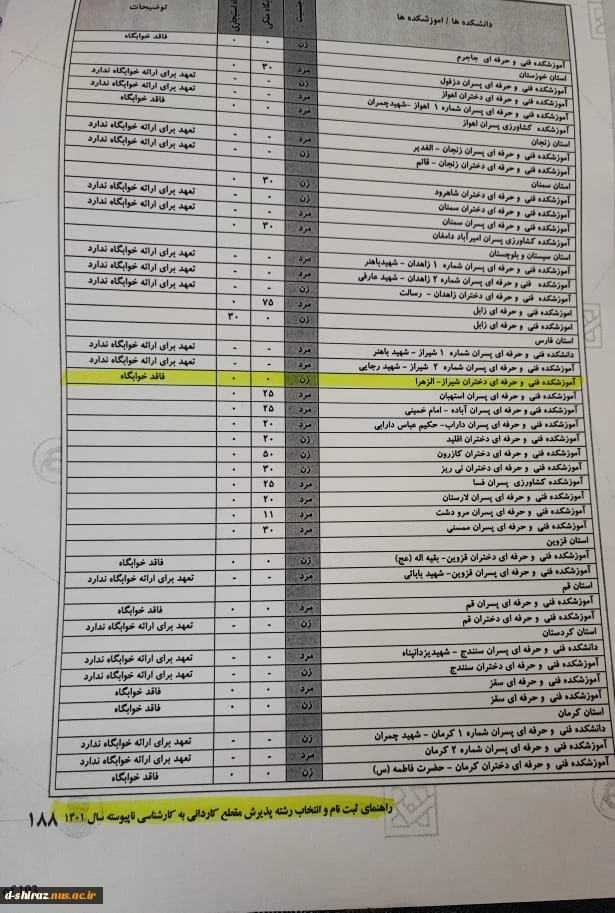 دانشکده ها / آموزشکده ها جنسیت توضیحات
زن ۰ ۰ فاقد خوابگاه
آموزشکده فنی و حرفه ای جاجرم
استان خوزستان مرد ۳۰ ۰
آموزشکده فنی و حرفه ای پسران دزفول زن - - تعهد برای ارائه خوابگاه ندارد
آموزشکده فنی و حرفه ای دختران اهواز مرد - - تعهد برای ارائه خوابگاه ندارد
آموزشکده فنی و حرفه ای پسران شماره ۱ اهواز -شهیدچمران مرد ۰ ۰ فاقد خوابگاه
آموزشکده کشاورزی پسران اهواز
استان زنجان مرد - - تعهد برای ارائه خوابگاه ندارد
آموزشکده فنی و حرفه ای پسران زنجان - الغدیر زن - - تعهد برای ارائه خوابگاه ندارد
آموزشکده فنی و حرفه ای دختران زنجان - قائم
استان سمنان زن ۳۰ ۰
آموزشکده فنی و حرفه ای دختران شاهرود زن - - تعهد برای ارائه خوابگاه ندارد
آموزشکده فنی و حرفه ای دختران سمنان مرد - - تعهد برای ارائه خوابگاه ندارد
آموزشکده فنی و حرفه ای پسران سمنان مرد ۳۰ ۰
آموزشکده کشاورزی پسران امیرآباد دامغان
استان سیستان و بلوچستان مرد - - تعهد برای ارائه خوابگاه ندارد
آموزشکده فنی و حرفه ای پسران شماره ۱ زاهدان - شهیدباهنر مرد - - تعهد برای ارائه خوابگاه ندارد
آموزشکده فنی و حرفه ای پسران شماره ۲ زاهدان - شهید عارفی زن - - تعهد برای ارائه خوابگاه ندارد
آموزشکده فنی و حرفه ای دختران زاهدان - رسالت مرد ۷۵ ۰
آموزشکده فنی و حرفه ای زابل زن ۰ ۳۰
آموزشکده فنی و حرفه ای زابل
استان فارس
دانشکده فنی و حرفه ای پسران شماره ۱ شیراز - شهید باهنر مرد - - تعهد برای ارائه خوابگاه ندارد
آموزشکده فنی و حرفه ای پسران شماره ۲ شیراز - شهید رجایی مرد - - تعهد برای ارائه خوابگاه ندارد
آموزشکده فنی و حرفه ای دختران شیراز- الزهرا زن ۰ ۰ فاقد خوابگاه
آموزشکده فنی و حرفه ای پسران استهبان مرد ۲۵ ۰
آموزشکده فنی و حرفه ای پسران آباده - امام خمینی مرد ۲۵ ۰
آموزشکده فنی و حرفه ای پسران داراب- حکیم عباس دارابی مرد ۲۰ ۰
آموزشکده فنی و حرفه ای دختران اقلید زن ۲۰ ۰
آموزشکده فنی و حرفه ای دختران کازرون زن ۵۰ ۰
آموزشکده فنی و حرفه ای دختران نی ریز زن ۳۰ ۰
آموزشکده کشاورزی پسران فسا مرد ۲۵ ۰
آموزشکده فنی و حرفه ای پسران لارستان مرد ۲۰ ۰
آموزشکده فنی و حرفه ای پسران مرو دشت مرد ۱۱ ۰
آموزشکده فنی و حرفه ای پسران ممسنی مرد ۳۰ ۰
استان قزوین
آموزشکده فنی و حرفه ای دختران قزوین- بقیه اله (عج) زن ۰ ۰ فاقد خوابگاه
آموزشکده فنی و حرفه ای پسران قزوین- شهید بابائی مرد - - تعهد برای ارائه خوابگاه ندارد
استان قم
آموزشکده فنی و حرفه ای پسران قم مرد ۰ ۰ فاقد خوابگاه
آموزشکده فنی و حرفه ای دختران قم زن - - تعهد برای ارائه خوابگاه ندارد
استان کردستان
دانشکده فنی و حرفه ای پسران سنندج - شهیدیزدانپناه مرد - - تعهد برای ارائه خوابگاه ندارد
آموزشکده فنی و حرفه ای دختران سنندج زن - - تعهد برای ارائه خوابگاه ندارد
آموزشکده فنی و حرفه ای سقز مرد ۰ ۰ فاقد خوابگاه
آموزشکده فنی و حرفه ای سقز زن ۰ ۰ فاقد خوابگاه
استان کرمان
دانشکده فنی و حرفه ای پسران شماره ۱ کرمان - شهید چمران زن - - تعهد برای ارائه خوابگاه ندارد
آموزشکده فنی و حرفه ای پسران شماره ۲ کرمان مرد - - تعهد برای ارائه خوابگاه ندارد
آموزشکده فنی و حرفه ای دختران کرمان - حضرت فاطمه (س) زن ۰ ۰ فاقد خوابگاه
راهنمای ثبت نام و انتخاب رشته پذیرش مقطع کاردانی به کارشناسی ناپیوسته سال ۱۴۰۱ ۱۸۸
d-shiraz.nus.ac.ir